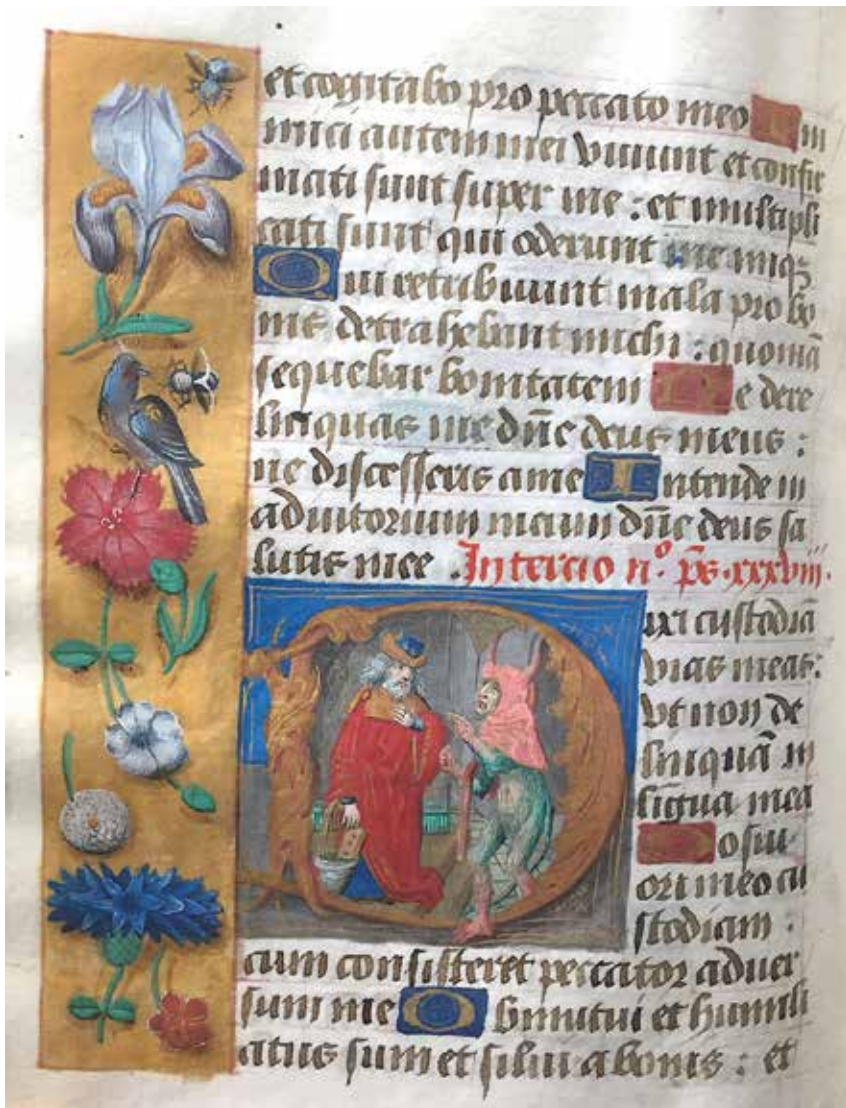 et cogitabo pro peccato meo In
imici autem mei vivunt et confir
mati sunt super me : et multipli
cati sunt qui oderunt me iniqꝫ
Qui retribuunt mala pro bo
nis detrahebant michi : quoniā
sequebar bonitatem Ne dere
linquas me dn̄e deus meus :
ne discesseris a me Intende in
adiutorium meum dn̄e deus sa
lutis mee . In tercio n° . ps . xxxviii .
Dixi custodiā
vias meas :
vt non de
linquā in
ligua mea
Posui
ori meo cu
stodiam :
cum consisteret peccator aduer
sum me Obmutui et humili
atus sum et silui a bonis : et